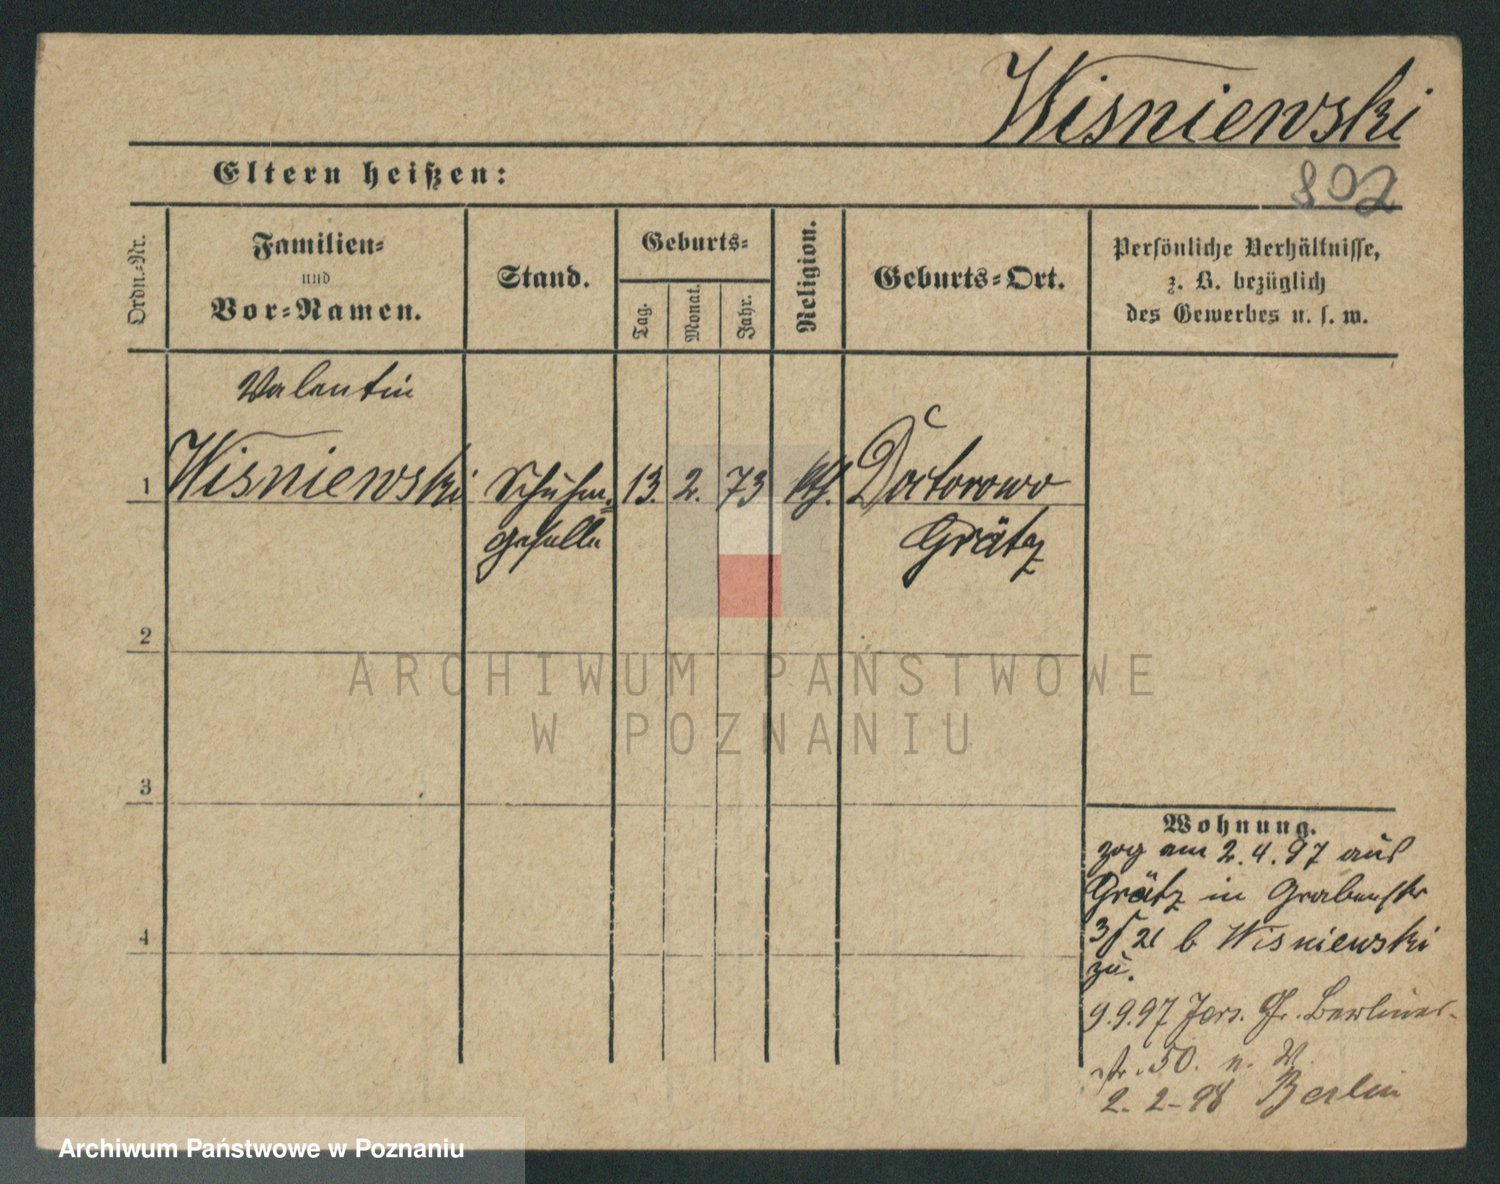 Wisniewski
Eltern heißen:
802
Ordn.-Nr.
Familien-
und
Vor-Namen.
Stand.
Geburts-
Tag.
Monat.
Jahr.
Religion.
Geburts-Ort.
Persönliche Verhältnisse,
z. B. bezüglich
des Gewerbes u. s. w.
Valentin
1 Wisniewski Schuhm= 13. 2. 73 kth. Doctorowo
geselle Grätz
2
3
4
Wohnung.
zog am 2.4.97 aus
Grätz in Grabenstr
21 b Wisniewski
zu.
9.9.97 Jers. Gr. Berliner-
str. 50. n. W.
2. 2-98 Berlin
ARCHIWUM PAŃSTWOWE
W POZNANIU
Archiwum Państwowe w Poznaniu